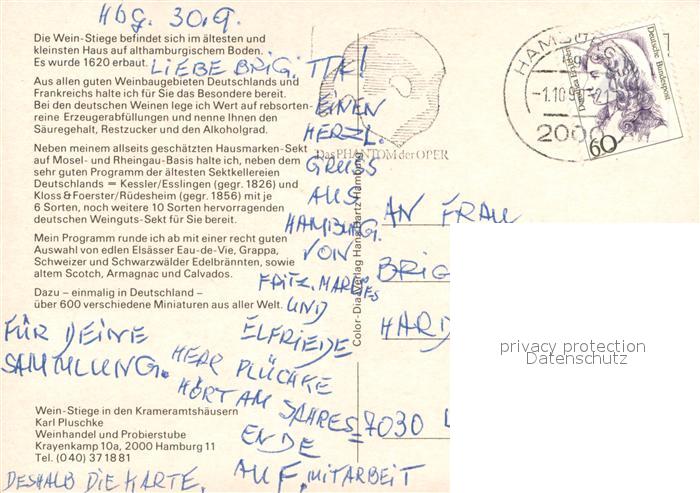 Hbg. 30.9.
Die Wein-Stiege befindet sich im ältesten und
kleinsten Haus auf althamburgischem Boden.
Es wurde 1620 erbaut.
Aus allen guten Weinbaugebieten Deutschlands und
Frankreichs halte ich für Sie das Besondere bereit.
Bei den deutschen Weinen lege ich Wert auf rebsorten-
reine Erzeugerabfüllungen und nenne Ihnen den
Säuregehalt, Restzucker und den Alkoholgrad.
Neben meinem allseits geschätzten Hausmarken-Sekt
auf Mosel- und Rheingau-Basis halte ich, neben dem
sehr guten Programm der ältesten Sektkellereien
Deutschlands = Kessler/Esslingen (gegr. 1826) und
Kloss & Foerster/Rüdesheim (gegr. 1856) mit je
6 Sorten, noch weitere 10 Sorten hervorragenden
deutschen Weinguts-Sekt für Sie bereit.
Mein Programm runde ich ab mit einer recht guten
Auswahl von edlen Elsässer Eau-de-Vie, Grappa,
Schweizer und Schwarzwälder Edelbränntten, sowie
altem Scotch, Armagnac und Calvados.
Dazu – einmalig in Deutschland –
über 600 verschiedene Miniaturen aus aller Welt.
Wein-Stiege in den Krameramtshäusern
Karl Pluschke
Weinhandel und Probierstube
Krayenkamp 10a, 2000 Hamburg 11
Tel. (040) 371881
LIEBE BRIGITTE!
EINEN
HERZL.
GRUSS
AUS
HAMBURG.
VON
FRITZ, MARLIES
UND
ELFRIEDE
HERR PLÜCHKE
HÖRT AM JAHRES=
ENDE
AUF, MITARBEIT
FÜR DEINE
SAMMLUNG.
DESHALB DIE KARTE.
Das PHANTOM der OPER
Color-Dia-Verlag Hans Hartz Hamburg
HAMBURG
-1.10.9
-21
2000
Deutsche Bundespost
60
AN FRAU
BRIG
HARD
7030
privacy protection
Datenschutz